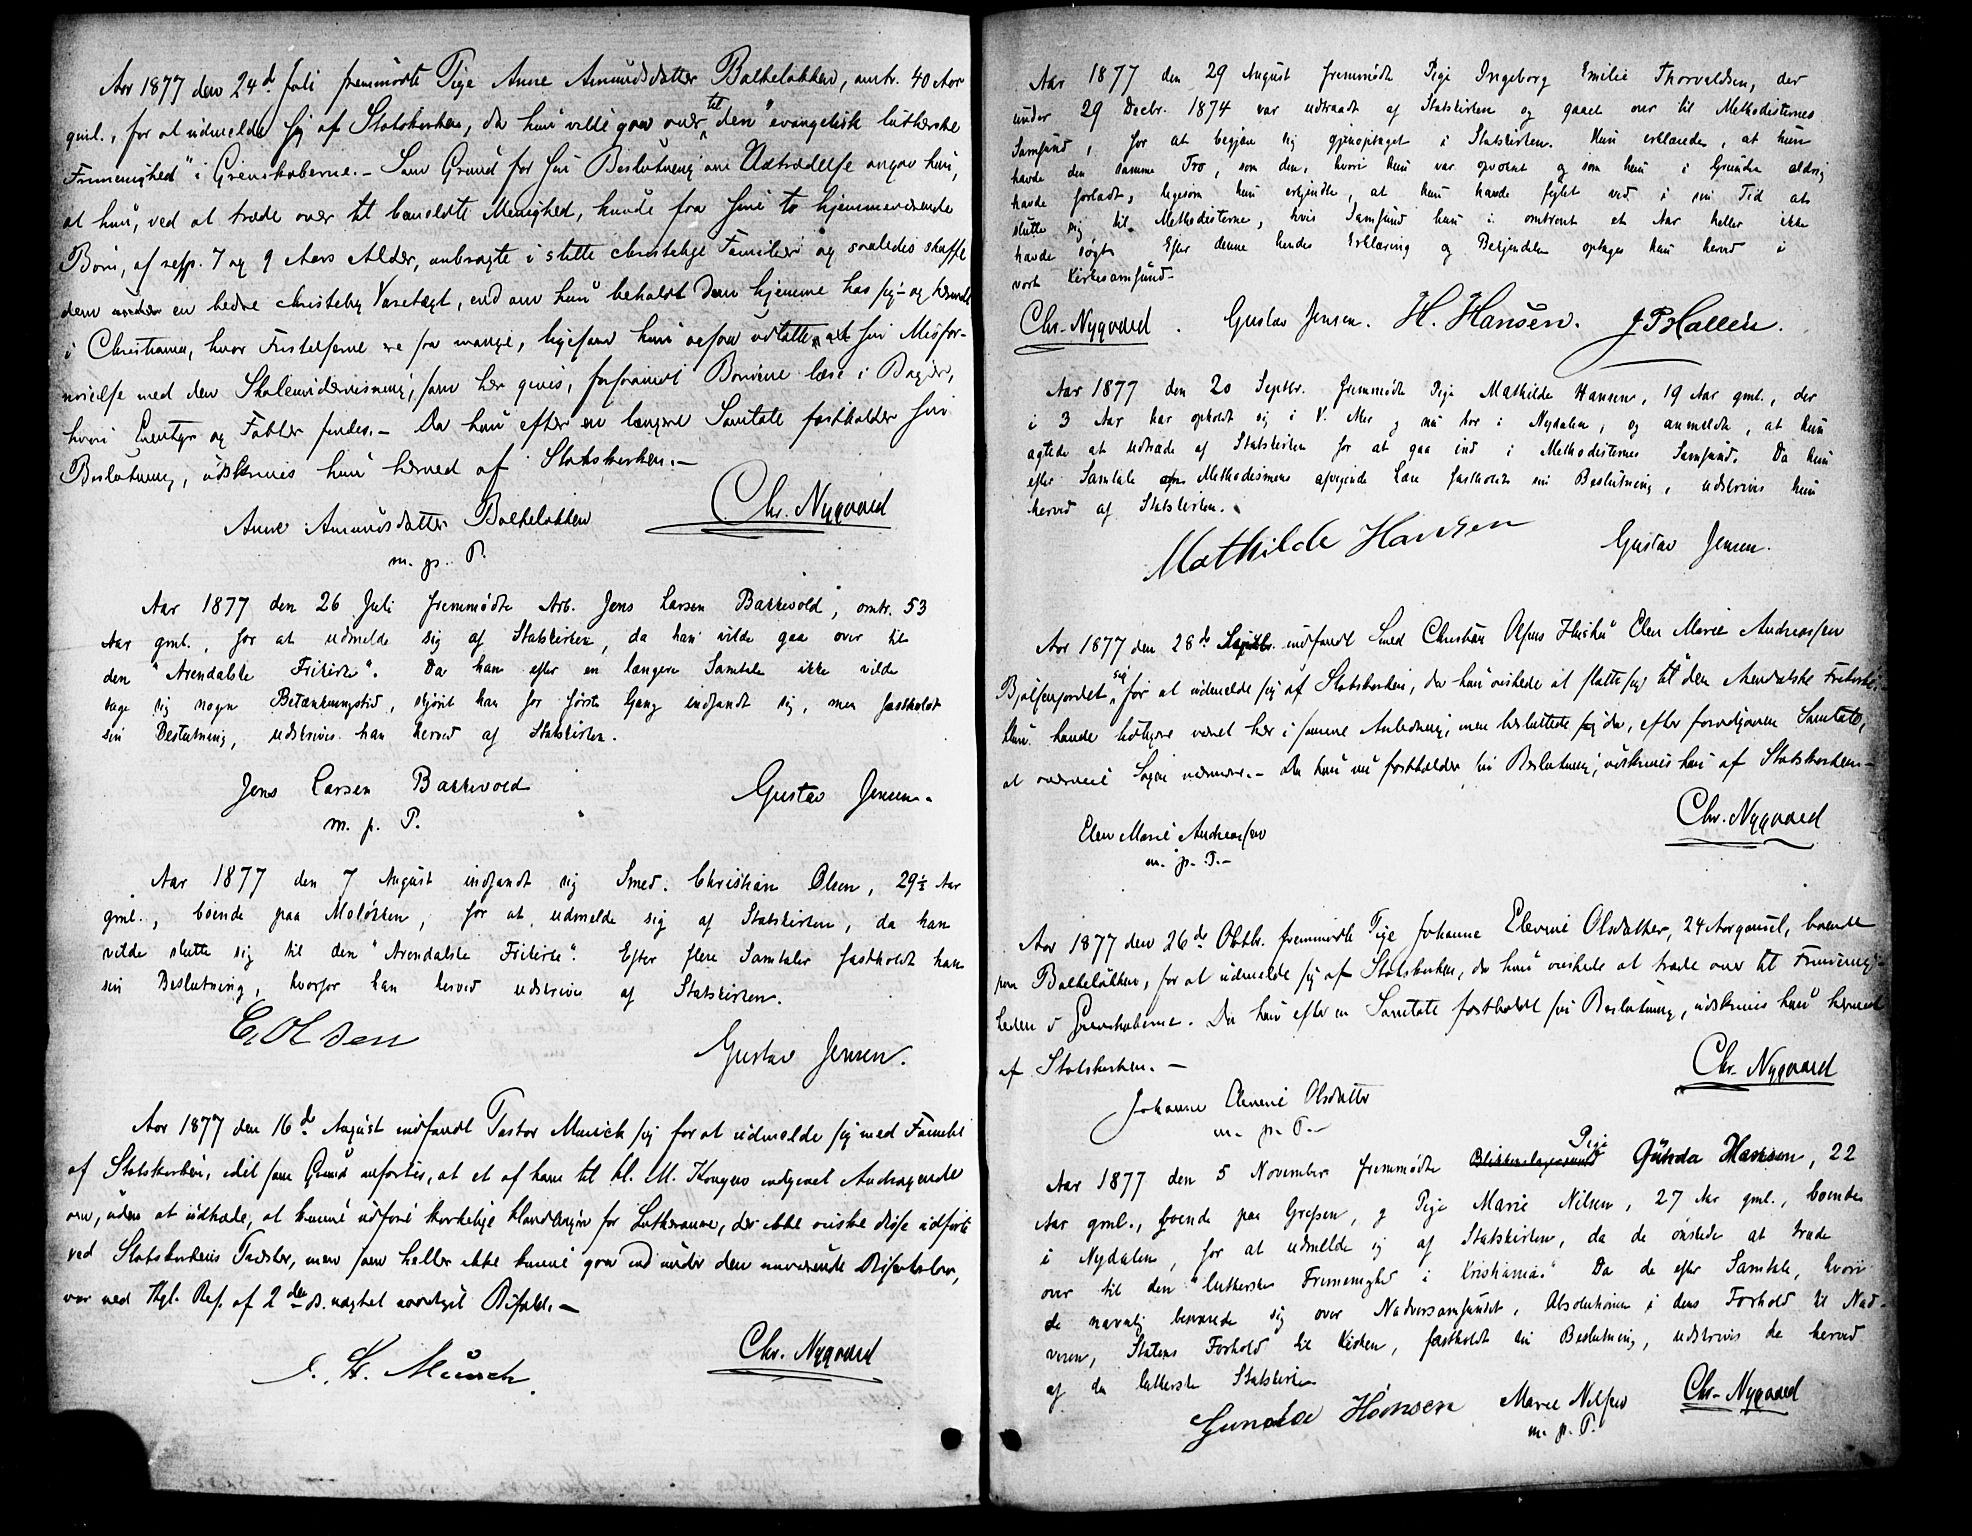 Aar 1877 den 24d. Juli fremmødte Pige Anne Amundsdatter Balkeløkken, omtr. 40 Aar
gml., for at udmelde sig af Statskirken, da hun vilde gaa over til den "evangelisk lutherske
Frimenighed" i Grevskaberne.- Som Grund for sin Beslutning om Udtrædelse angav hun,
at hun, ved at træde over til bemeldte Menighed, kunde faa sine to hjemmeværende
Børn, af resp. 7 og 9 Aars Alder, anbragte i slette christelige Familier og saaledes skaffe
dem en bedre christelig Varetægt, end om hun beholdt dem hjemme hos sig- og
i Christiania, hvor Fristelserne ere saa mange, ligesom hun ogsaa udtalte sin Misfor-
nøielse med den Skoleundervisning, som her gives, forsaavidt Børnene læse i Bøger,
hvori Eventyr og Fabler findes.- Da hun efter en længere Samtale fastholder sin
Beslutning, udskrives hun herved af Statskirken.-
Anne Amundsdatter Balkeløkken
m. p. P.
Chr. Nygaard
Aar 1877 den 26 Juli fremmødte Arb. Jens Larsen Bakkevold, omtr. 53
Aar gml., for at udmelde sig af Statskirken, da han vilde gaa over til
den "Arendalske Frikirke". Da han efter en længere Samtale ikke vilde
tage sig nogen Betænkningstid, skjønt han for første Gang indfandt sig, men fastholdt
sin Beslutning, udskrives han herved af Statskirken.
Jens Larsen Bakkevold
m. p. P.
Gustav Jensen.
Aar 1877 den 7 August indfandt sig Smed. Christian Olsen, 29½ Aar
gml., boende paa Moløkken, for at udmelde sig af Statskirken, da han
vilde slutte sig til den "Arendalske Frikirke". Efter flere Samtaler fastholdt han
sin Beslutning, hvorfor han herved udskrives af Statskirken.
C. Olsen
Gustav Jensen.
Aar 1877 den 16de August indfandt Pastor Munch sig for at udmelde sig med Familie
af Statskirken, idet som Grund anførtes, at et af ham til H. M. Kongen indgivet Andragende
om, uden at udtræde, at kunne udføre kirkelige Handlinger for Lutheranere, der ikke ønske disse udførte
ved Statskirkens Præster, men som heller ikke kunne gaa ind under den nuværende Dissenterlov,
var ved Kgl. Res. af 2den d. M. nægtet Bifald.-
J. St. Munch
Chr. Nygaard
Aar 1877 den 29 August fremmødte Pige Ingeborg Emilie Thorvaldsen, der
under 29 Decbr. 1874 var udtraadt af Statskirken og gaaet over til Methodisternes
Samfund, for at begjære sig gjenoptaget i Statskirken. Hun erklærede, at hun
havde den samme Tro, som den, hvori hun var opvoxet og som hun i Grunden aldrig
havde forladt, ligesom hun erkjendte, at hun havde feilet ved i sin Tid at
slutte sig til Methodisterne, hvis Samfund hun i omtrent et Aar heller ikke
havde søgt. Efter denne hendes Erklæring og Bekjendelse optages hun herved i
vort Kirkesamfund-
Chr. Nygaard. Gustav Jensen. H. Hansen. J P Hallen.
Aar 1877 den 20 Septbr. fremmødte Pige Mathilde Hansen, 19 Aar gml., der
i 3 Aar har opholdt sig i V. Aker og nu bor i Nydalen, og anmeldte, at hun
agtede at udtræde af Statskirken for at gaa ind i Methodisternes Samfund. Da hun
efter Samtale om Methodismens afvigende Lære fastholdt sin Beslutning, udskrives hun
herved af Statskirken.
Mathilde Hansen
Gustav Jensen.
Aar 1877 den 28de Septbr. indfandt Smed Christian Olsens Hustru Elen Marie Andreassen
Bjølsenjordet sig for at udmelde sig af Statskirken, da hun ønskede at slutte sig til den Arendalske Frikirke.
Hun havde tidligere været her i samme Anledning, men besluttede da, efter foredgaaen Samtale,
at overveie Sagen nærmere.- Da hun nu fastholder sin Beslutning, udskrives hun af Statskirken-
Elen Marie Andreassen
m. p. P.-
Chr. Nygaard
Aar 1877 den 26de Oktbr. fremmødte Pige Johanne Elevine Olsdatter, 24 Aar gammel, boende
paa Balkeløkken, for at udmelde sig af Statskirken, da hun ønskede at træde over til Frimenig-
heden i Grevskaberne. Da hun efter en Samtale fastholdt sin Beslutning, udskrives hun herved
af Statskirken.-
Johanne Elevine Olsdatter
m. p. P.-
Chr. Nygaard
Aar 1877 den 5 November fremmødte Pige Gunda Hansen, 22
Aar gml., boende paa Grefsen, og Pige Marie Nilsen, 27 Aar gml., boende
i Nydalen, for at udmelde sig af Statskirken, da de ønskede at træde
over til den "lutherske Frimenighed i Kristiania." Da de efter Samtale, hvori
de navnlig besværede sig over Nadversamfundet, Absolutionen i dens Forhold til Nad-
veren, Statens Forhold til Kirken, fastholdt sin Beslutning, udskrives de herved
af den lutherske Statskirke
Gunda Hansen Marie Nilsen
m. p. P.
Chr. Nygaard